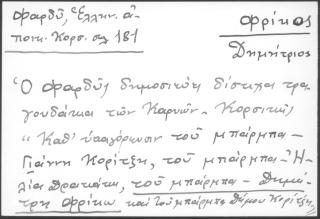 Φαρδῦ, Ἑλλην. ἀ-
ποικ. Κορσ. σελ 181
Φρίκος
Δημήτριος
Ὁ Φαρδῦς δημοσιεύει δίστιχα τρα-
γουδάκια τῶν Καρυῶν - Κορσικῆς
"Καθ' ὑπαγόρευσιν τοῦ μπάρμπα-
Γιάννη Κορίτζη, τοῦ μπάρμπα-Ἠ-
λία Δραγάτη, τοῦ μπάρμπα-Δημή-
τρη Φρίκου καὶ τοῦ μπάρμπα Δήμου Κορίτζη,